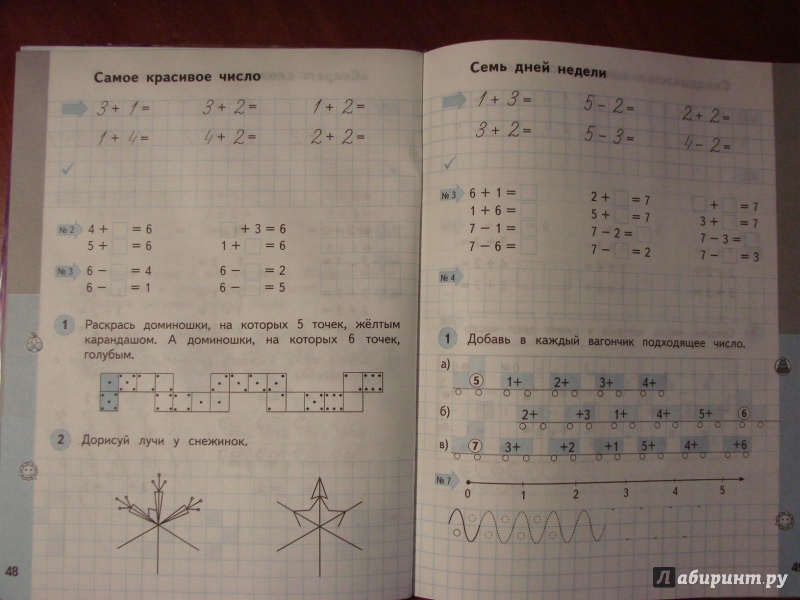 Самое красивое число
3 + 1 = 3 + 2 = 1 + 2 =
1 + 4 = 4 + 2 = 2 + 2 =
№ 2 4 + = 6 + 3 = 6
5 + = 6 1 + = 6
№ 3 6 − = 4 6 − = 2
6 − = 1 6 − = 5
1 Раскрась доминошки, на которых 5 точек, жёлтым
карандашом. А доминошки, на которых 6 точек,
голубым.
2 Дорисуй лучи у снежинок.
48
Семь дней недели
1 + 3 = 5 − 2 = 2 + 2 =
3 + 2 = 5 − 3 = 4 − 2 =
№ 3 6 + 1 = 2 + = 7 + = 7
1 + 6 = 5 + = 7 3 + = 7
7 − 1 = 7 − 2 = 7 − 3 =
7 − 6 = 7 − = 2 7 − = 3
№ 4
1 Добавь в каждый вагончик подходящее число.
а) 5 1+ 2+ 3+ 4+
б) 2+ +3 1+ 4+ 5+ 6
в) 7 3+ +2 +1 5+ 4+ +6
№ 7
0 1 2 3 4 5
Лабиринт.ру